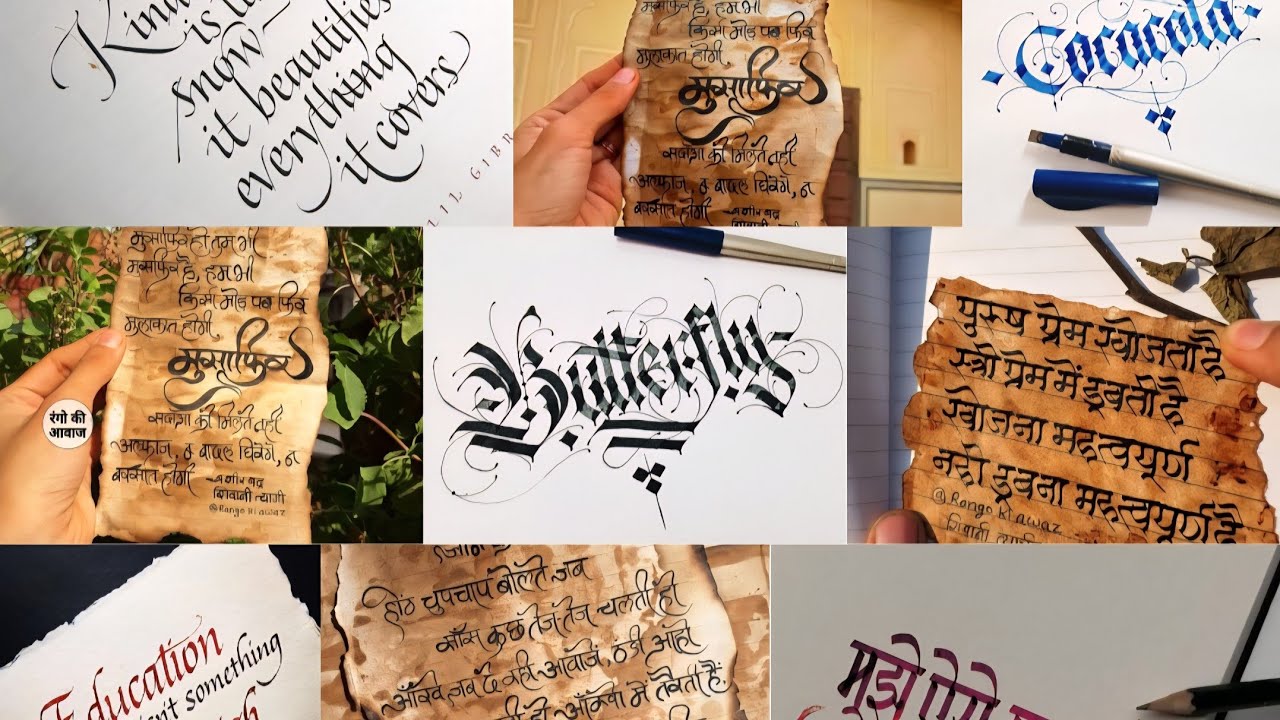 Kind
is
snow
it beautifies
everything
it covers
LIL GIBR
मुसाफिर है, हम भी
किसी मोड़ पर फिर
मुलाकात होगी
मुसाफिर
सजगा की मिलते नहीं
अल्फाज, व बादल घिरेंगे, न
बरसात होगी
Cococola
मुसाफिर हो तुम भी
मुसाफिर है, हम भी
किसी मोड़ पर फिर
मुलाकात होगी
मुसाफिर
सजगा की मिलते नहीं
अल्फाज, व बादल घिरेंगे, न
बरसात होगी
शिवानी त्यागी
@Rango ki awaz
रंगो की
आवाज
Butterfly
पुरुष प्रेम खोजता है
स्त्री प्रेम में डूबती है
खोजना महत्वपूर्ण
नही डूबना महत्वपूर्ण है
@Rango ki awaz
शिवानी त्यागी
Education
isn't something
होंठ चुपचाप बोलते जब
साँस कुछ तेज तेज चलती हो
आँखे जब दे रही आवाजें, ठंडी आहों
आँखो में तैरती हैं
मुझे ऐसे